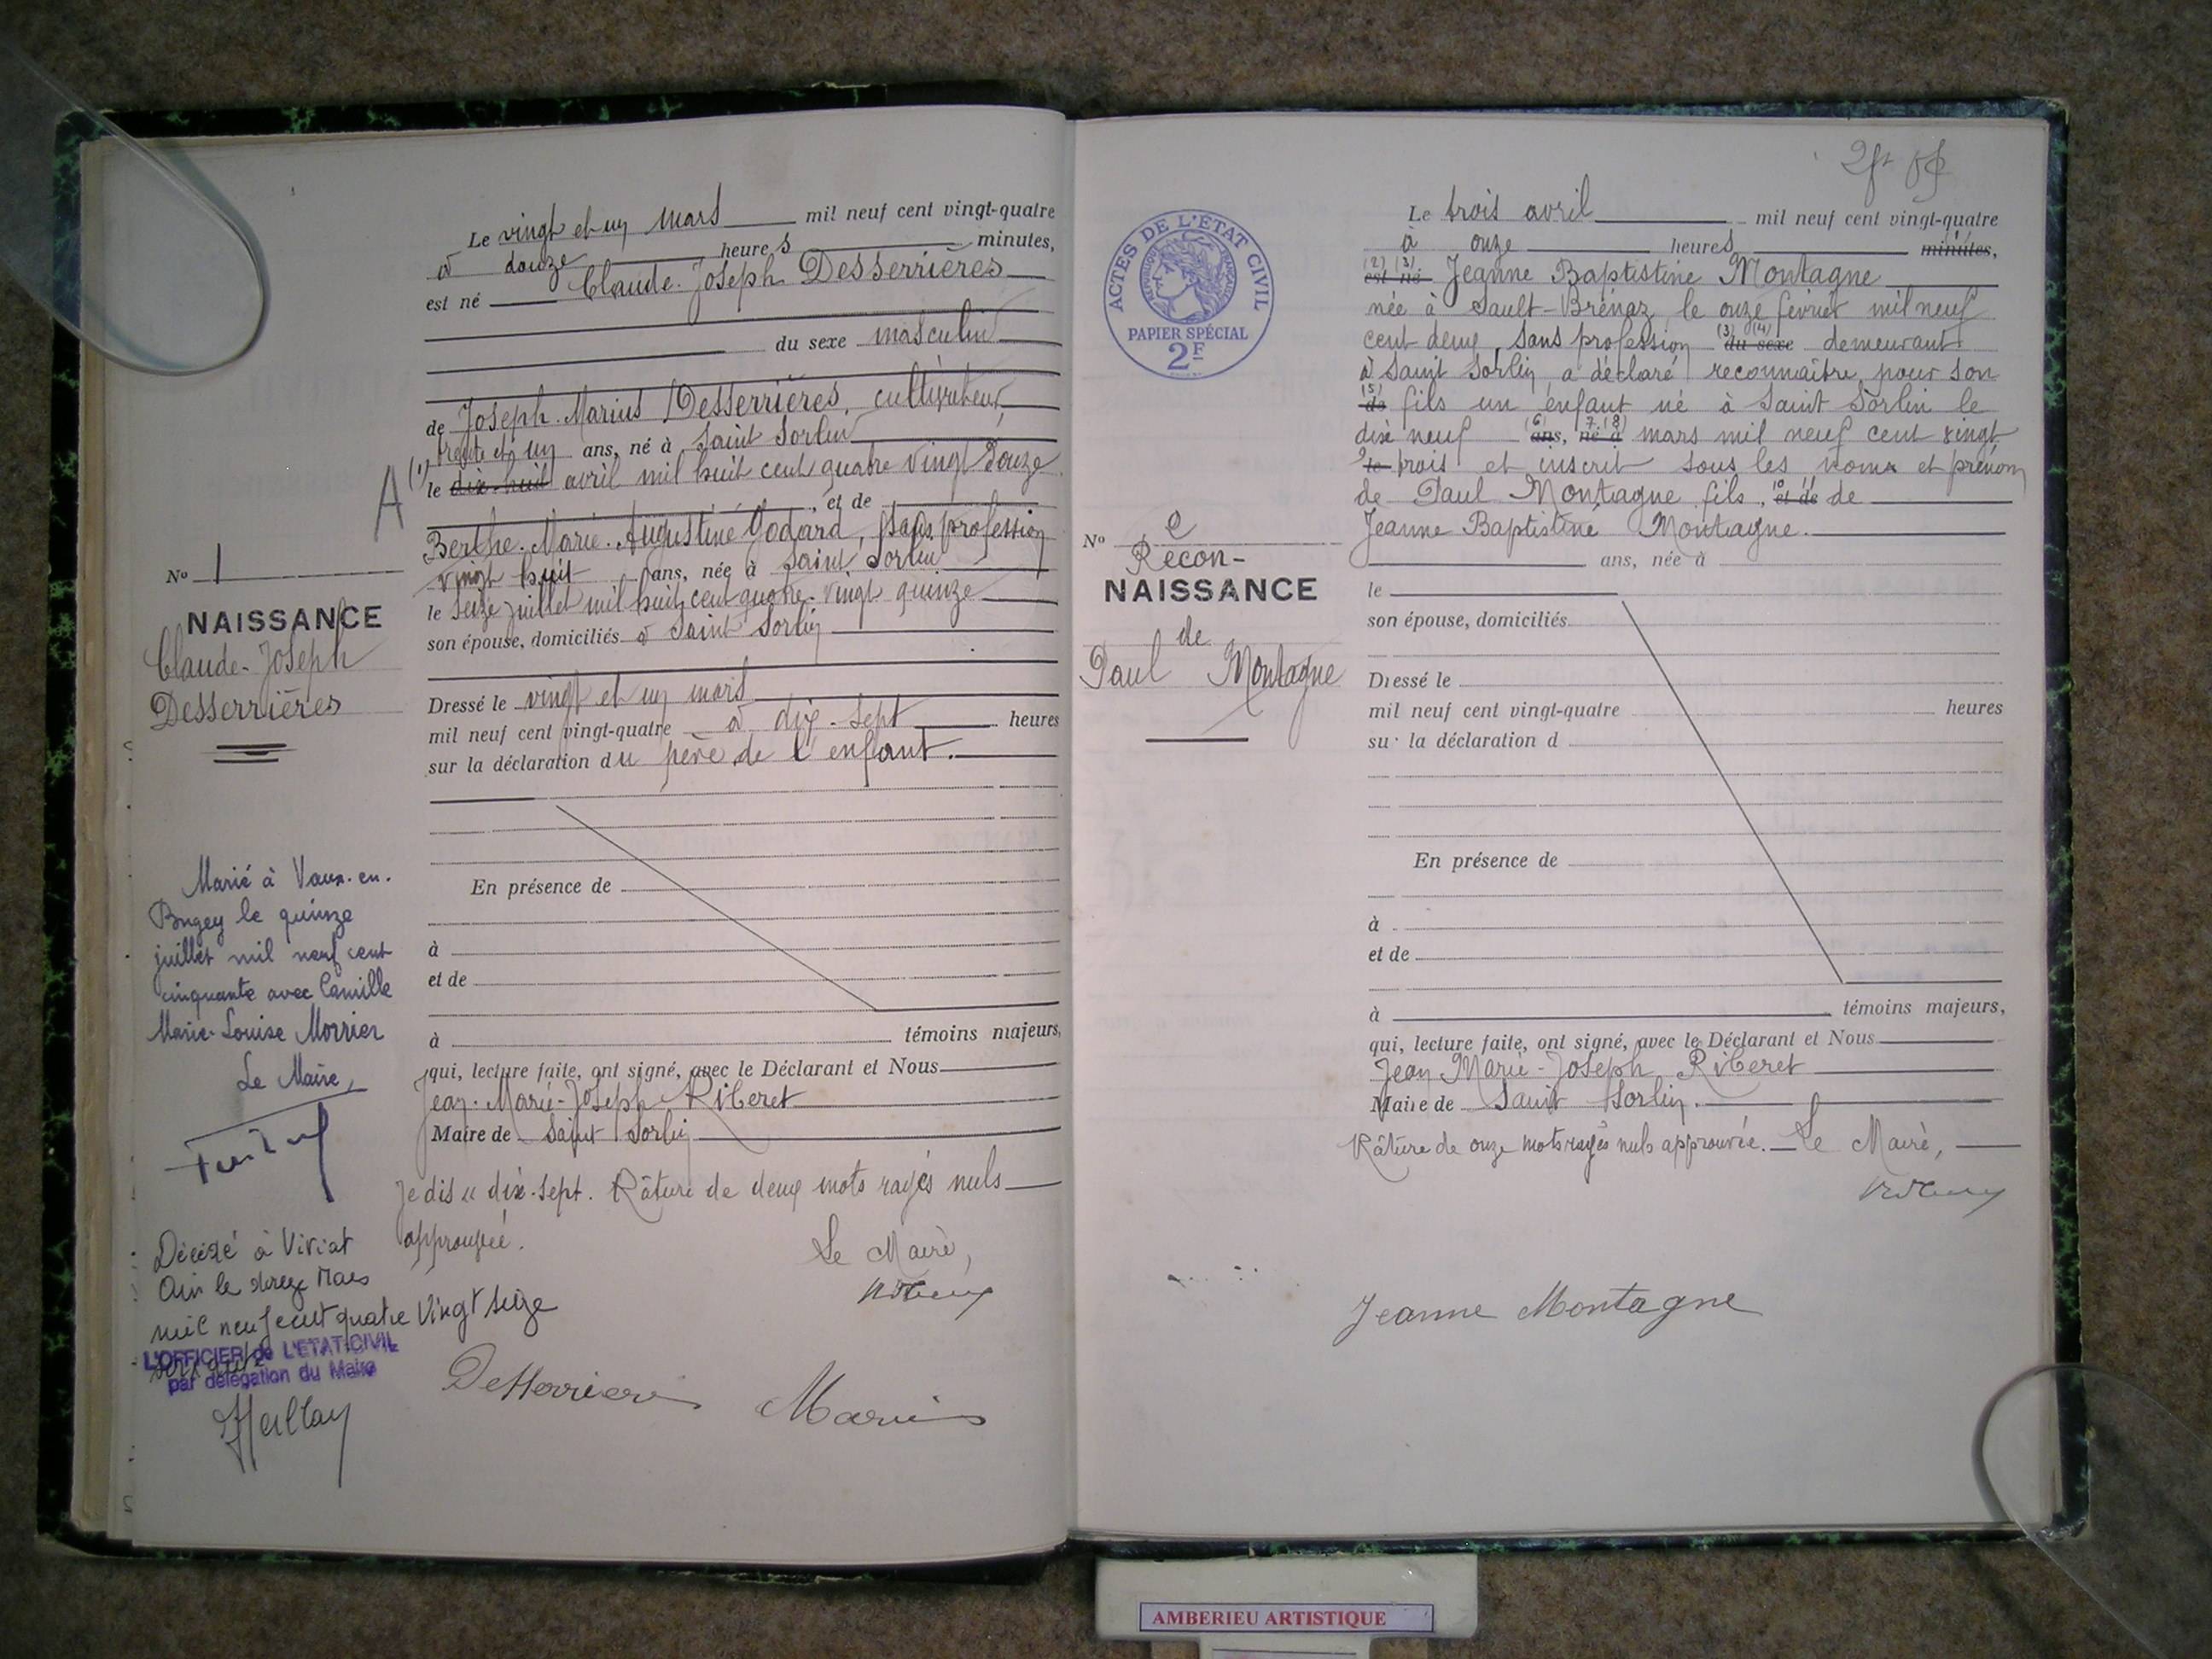 Le vingt et un mars mil neuf cent vingt-quatre
à douze heures minutes,
est né Claude-Joseph Desserrières
du sexe masculin
de Joseph-Marius Desserrières, cultivateur,
trente et un ans, né à Saint Sorlin
A (1) le dix-huit avril mil huit cent quatre vingt douze
, et de
Berthe-Marie-Augustine Godard, sans profession
vingt huit ans, née à Saint Sorlin
le seize juillet mil huit cent quatre-vingt quinze
son épouse, domiciliés à Saint Sorlin
Dressé le vingt et un mars
mil neuf cent vingt-quatre à dix-sept heures
sur la déclaration du père de l'enfant.
En présence de
à
et de
à témoins majeurs,
qui, lecture faite, ont signé, avec le Déclarant et Nous
Jean-Marie-Joseph Riberet
Maire de Saint Sorlin
Je dis dix-sept. Râture de deux mots rayés nuls
approuvée.
Le Maire,
Desserrieres Marius
No 1
NAISSANCE
Claude-Joseph
Desserrières
Marié à Vaux-en-
Bugey le quinze
juillet mil neuf cent
cinquante avec Camille
Marie-Louise Morrier
Le Maire,
Décédé à Viriat
Ain le douze Mars
mil neuf cent quatre vingt seize
L'OFFICIER de L'ETAT-CIVIL
par délégation du Maire
ACTES DE L'ÉTAT CIVIL
RÉPUBLIQUE FRANÇAISE
PAPIER SPÉCIAL
2F
No
Recon-
NAISSANCE
de
Paul Montagne
Le trois avril mil neuf cent vingt-quatre
à onze heures minutes,
(2) (3) est né Jeanne Baptistine Montagne
née à Sault-Brénaz, le onze février mil neuf
cent deux, sans profession (3) (4) du sexe demeurant
à Saint Sorlin a déclaré reconnaître pour son
(5) de fils un enfant né à Saint Sorlin le
dix neuf (6) ans, 7 (8) né à mars mil neuf cent vingt
9 le trois et inscrit sous les noms et prénom
de Paul Montagne fils, 10 11 et de de
Jeanne Baptistine Montagne.
ans, née à
le
son épouse, domiciliés
Dressé le
mil neuf cent vingt-quatre heures
sur la déclaration d
En présence de
à
et de
à témoins majeurs,
qui, lecture faite, ont signé, avec le Déclarant et Nous
Jean Marie-Joseph Riberet
Maire de Saint Sorlin.
Râture de onze mots rayés nuls approuvée. Le Maire,
Jeanne Montagne
AMBERIEU ARTISTIQUE